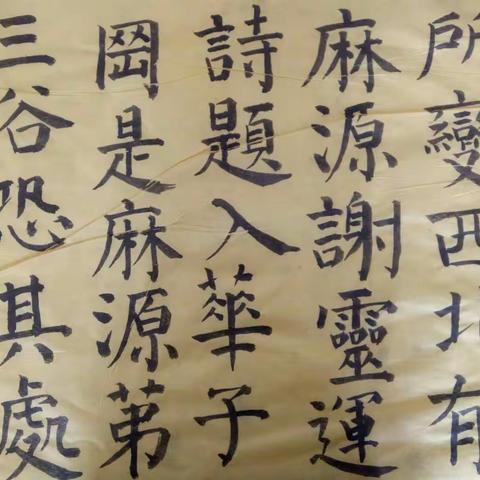 所變西北有
麻源謝靈運
詩題入華子
岡是麻源第
三谷恐其處